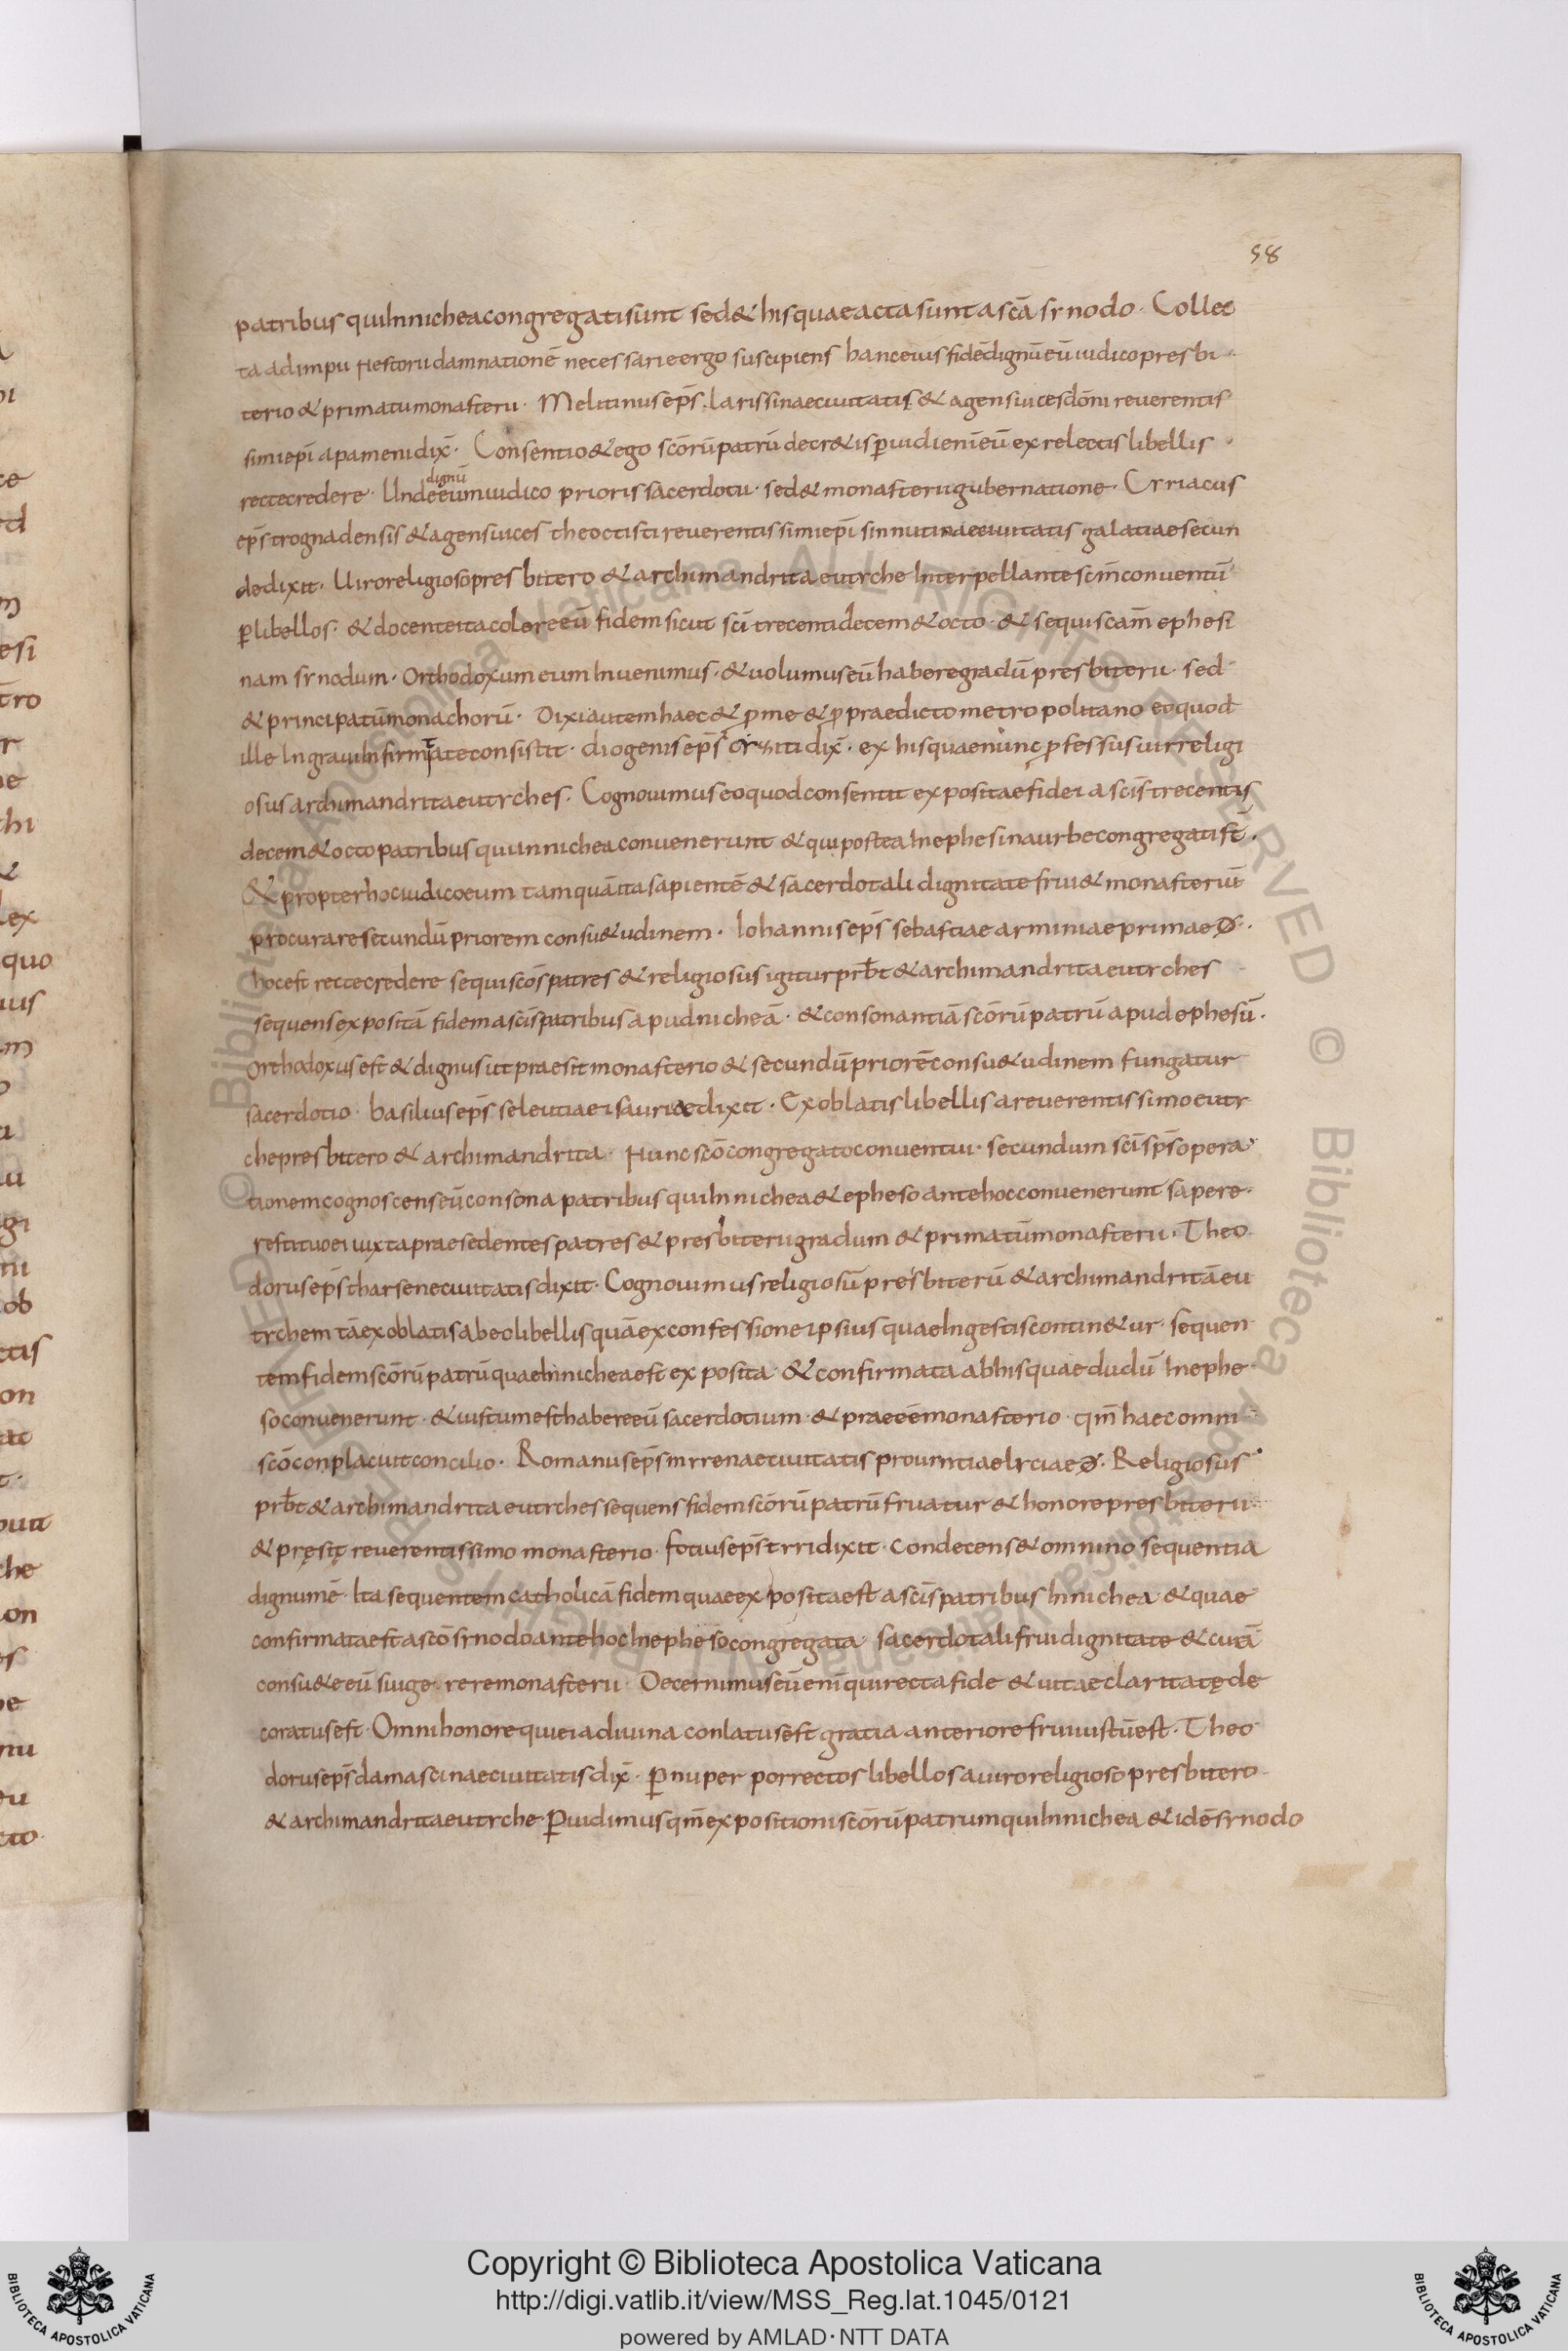 58
patribus qui In nichea congregati sunt sed & his quae acta sunt a scā synodo · Collec
ta ad impii Nestorii damnationē necessarie ergo suscipiens hanc eius fidē dignū eū iudico presbi
terio & primatu monasterii · Melitinus ep̄s larissinae ciuitatis & agens uices dōmni reuerentis
simi ep̄i apameni dix̄ · Consentio & ego scōrū patrū decr&is ꝑuidi eni eū ex relectis libellis
dignū
recte credere · Unde eum iudico prioris sacerdotii · sed & monasterii gubernatione · Cyriacus
ep̄s trognadensis & agens uices theoctisti reuerentissimi ep̄i sinnutinae ciuitatis galatiae secun
de dixit · Uiro religioso presbitero & archimandrita eutyche Interpellante scm̄ conuentū
ꝑ libellos · & docente ita colere eū fidem sicut sci trecenti decem & octo · & sequi scam̄ ephesi
nam synodum · Orthodoxum eum Inuenimus · & uolumus eū habere gradū presbiterii · sed
& principatū monachorū · Dixi autem haec & ꝓ me & ꝓ praedicto metropolitano eo quod
ille In graui Infirmitate consistit · diogenis ep̄s cyzici dix̄ · ex his quae nunc ꝓfessus uir religi
osus archimandrita eutyches · Cognouimus eo quod consentit expositae fidei a scīs trecentis
decem & octo patribus qui in nichea conuenerunt & qui postea In ephesina urbe congregati st̄ ·
& propter hoc iudico eum tamquā ita sapientē & sacerdotali dignitate frui & monasteriū
procurare secundū priorem consu&udinem · Iohannis ep̄s sebastiae arminiae primae đ ·
hoc est recte credere sequi scōs patres & religiosus igitur prb̄t & archimandrita eutyches
sequens expositā fidem a scīs patribus apud nicheā · & consonantiā scōrū patrū apud ephesū ·
Orthodoxus est & dignus ut praesit monasterio & secundū priorē consu&udinem fungatur
sacerdotio · basilius ep̄s seleutiae isauriae dixit · Ex oblatis libellis a reuerentissimo euty
che presbitero & archimandrita · Nunc scō congregato conuentui · secundum scī sp̄s opera
tionem cognoscens eū consona patribus qui In nichea & epheso ante hoc conuenerunt sapere ·
restituo ei iuxta praesedentes patres & presbiterii gradum & primatū monasterii · Theo
dorus ep̄s tharsene ciuitatis dixit · Cognouimus religiosū presbiterū & archimandritā eu
tychem tā ex oblatis ab eo libellis quā ex confessione ipsius quae In gestis contin&ur · sequen
tem fidem scōrū patrū quae In nichea est exposita · & confirmata ab his quae dudū In ephe
so conuenerunt · & iustum est habere eū sacerdotium · & praeēe monasterio · qm̄ haec omni
scō conplacuit concilio · Romanus ep̄s myrenae ciuitatis prouintiae lyciae đ · Religiosus
prb̄t & archimandrita eutyches sequens fidem scōrū patrū fruatur & honore presbiterii
& pręsit reuerentissimo monasterio · fotius ep̄s tyri dixit · condecens & omnino sequentia
dignum ē · Ita sequentem catholicā fidem quae exposita est a scīs patribus In nichea & quae
confirmata est a scō synodo ante hoc In epheso congregata · sacerdotali frui dignitate & curā
consu&e eū suī gerere monasterii · Decernimus eū enī qui recta fide & uitae claritatę de
coratus est · Omni honore qui ei a diuina conlatus est gratia anteriore frui iustū est · Theo
dorus ep̄s damascinae ciuitatis dix̄ · ꝑ nuper porrectos libellos a uiro religioso presbitero
& archimandrita eutyche ꝑuidimus qm̄ expositioni scōrū patrum qui In nichea & idē synodo
Copyright © Biblioteca Apostolica Vaticana
http://digi.vatlib.it/view/MSS_Reg.lat.1045/0121
powered by AMLAD·NTT DATA